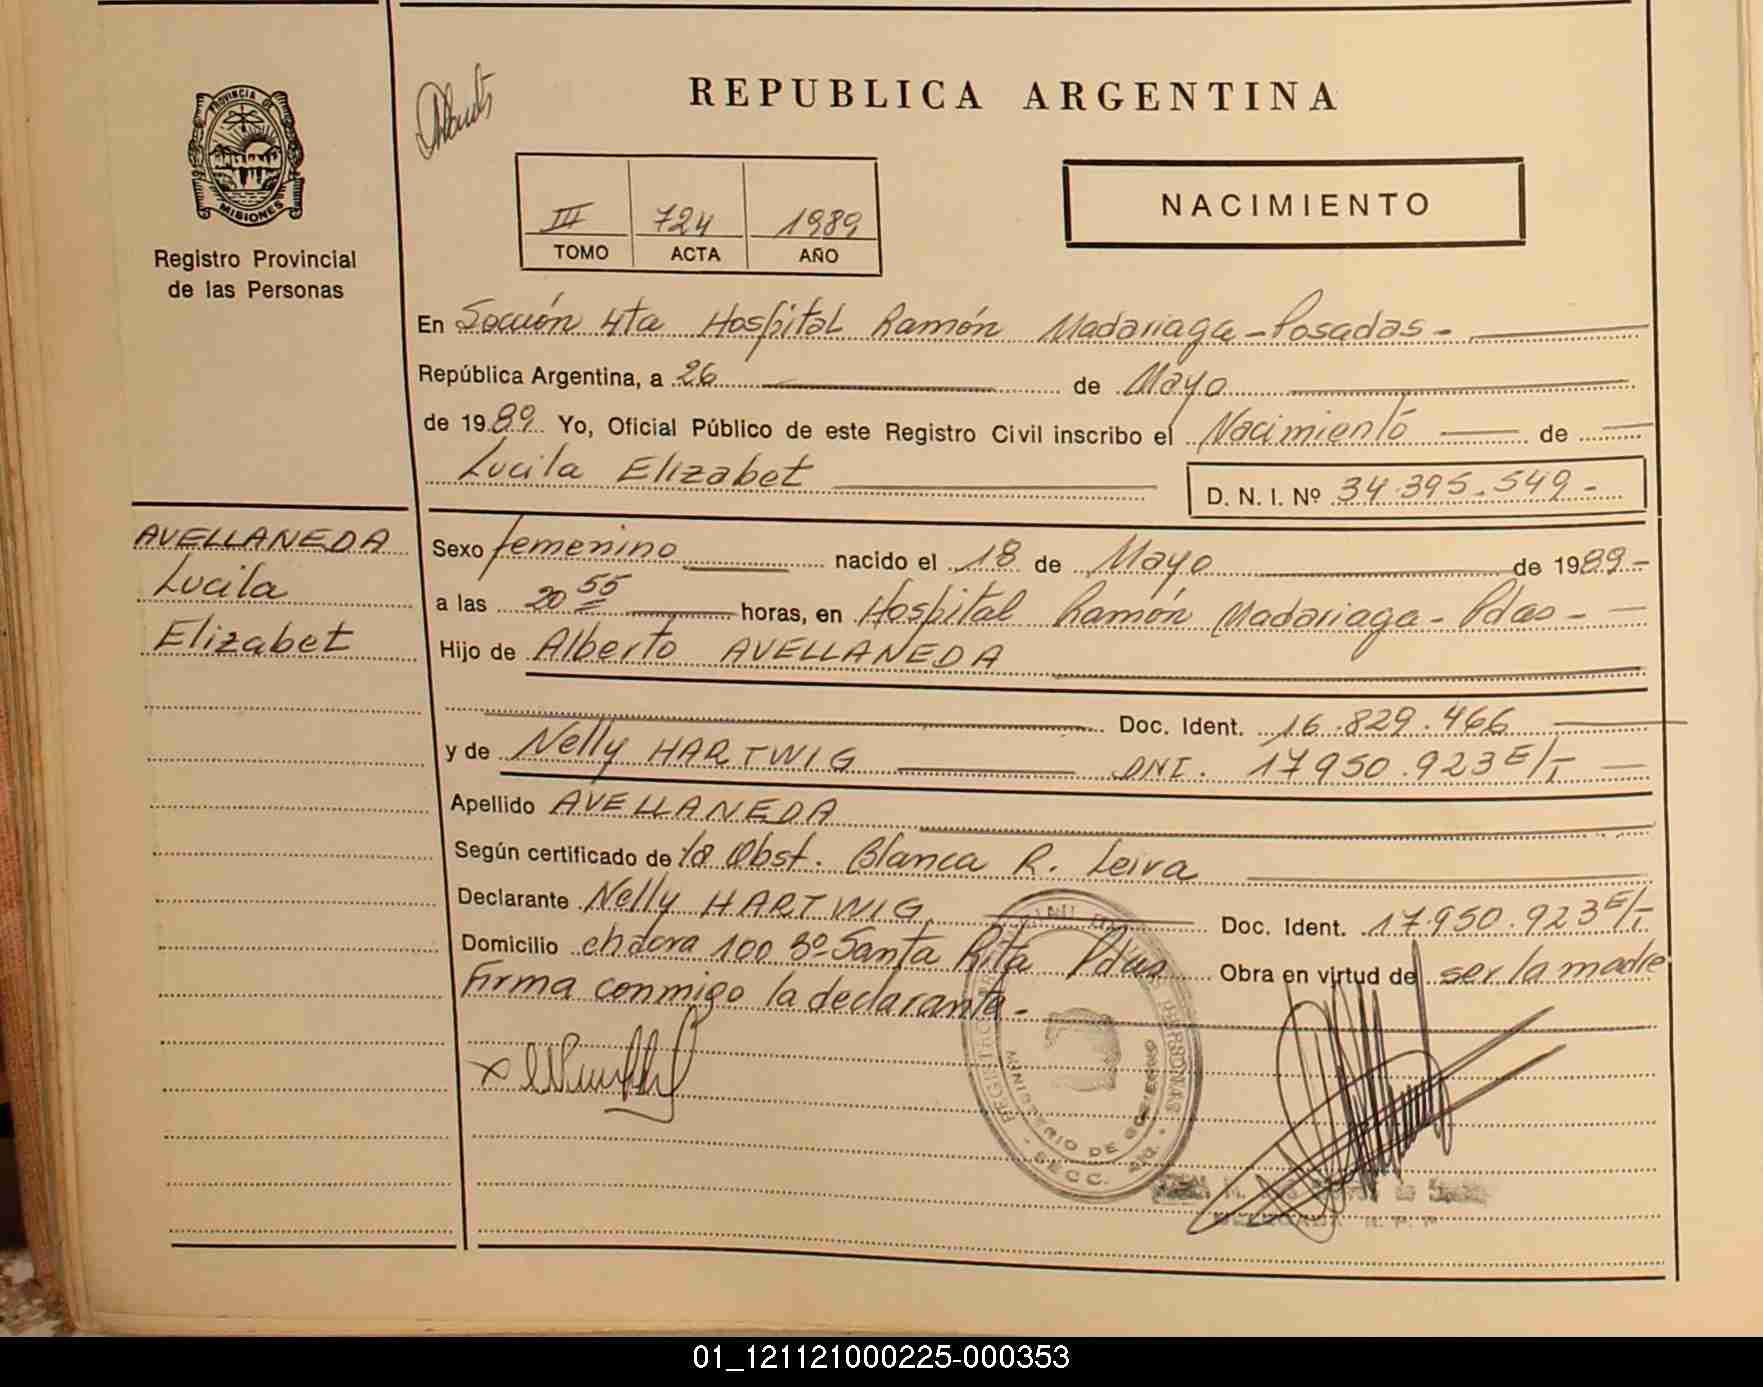 PROVINCIA DE
MISIONES
Registro Provincial
de las Personas
REPUBLICA ARGENTINA
III 724 1989
TOMO ACTA AÑO
NACIMIENTO
En Sección 4ta Hospital Ramón Madariaga - Posadas -
República Argentina, a 26 de Mayo
de 1989 Yo, Oficial Público de este Registro Civil inscribo el Nacimiento de
Lucila Elizabet
D. N. I. Nº 34.395.549.-
AVELLANEDA
Lucila
Elizabet
Sexo femenino nacido el 18 de Mayo de 1989.-
a las 20 55 horas, en Hospital Ramón Madariaga - Pdas -
Hijo de Alberto AVELLANEDA
Doc. Ident. 16.829.466
y de Nelly HARTWIG DNI. 17950.923 E/T
Apellido AVELLANEDA
Según certificado de la Obst. Blanca R. Leiva
Declarante Nelly HARTWIG Doc. Ident. 17950.923 E/T
Domicilio chacra 100 Bº Santa Rita Pdas Obra en virtud de ser la madre
Firma conmigo la declarante.-
MINISTERIO DE GOBIERNO
SECC. 4ta.
01_121121000225-000353